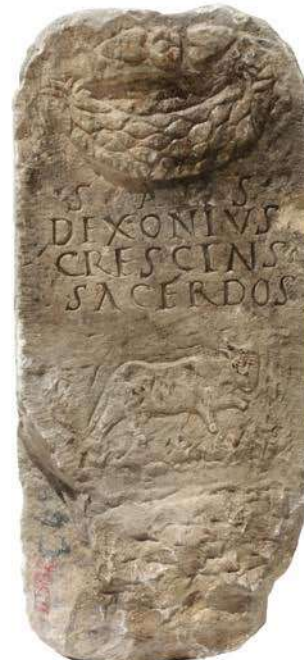 S A S
DEXONIVS
CRESCINS
SACERDOS